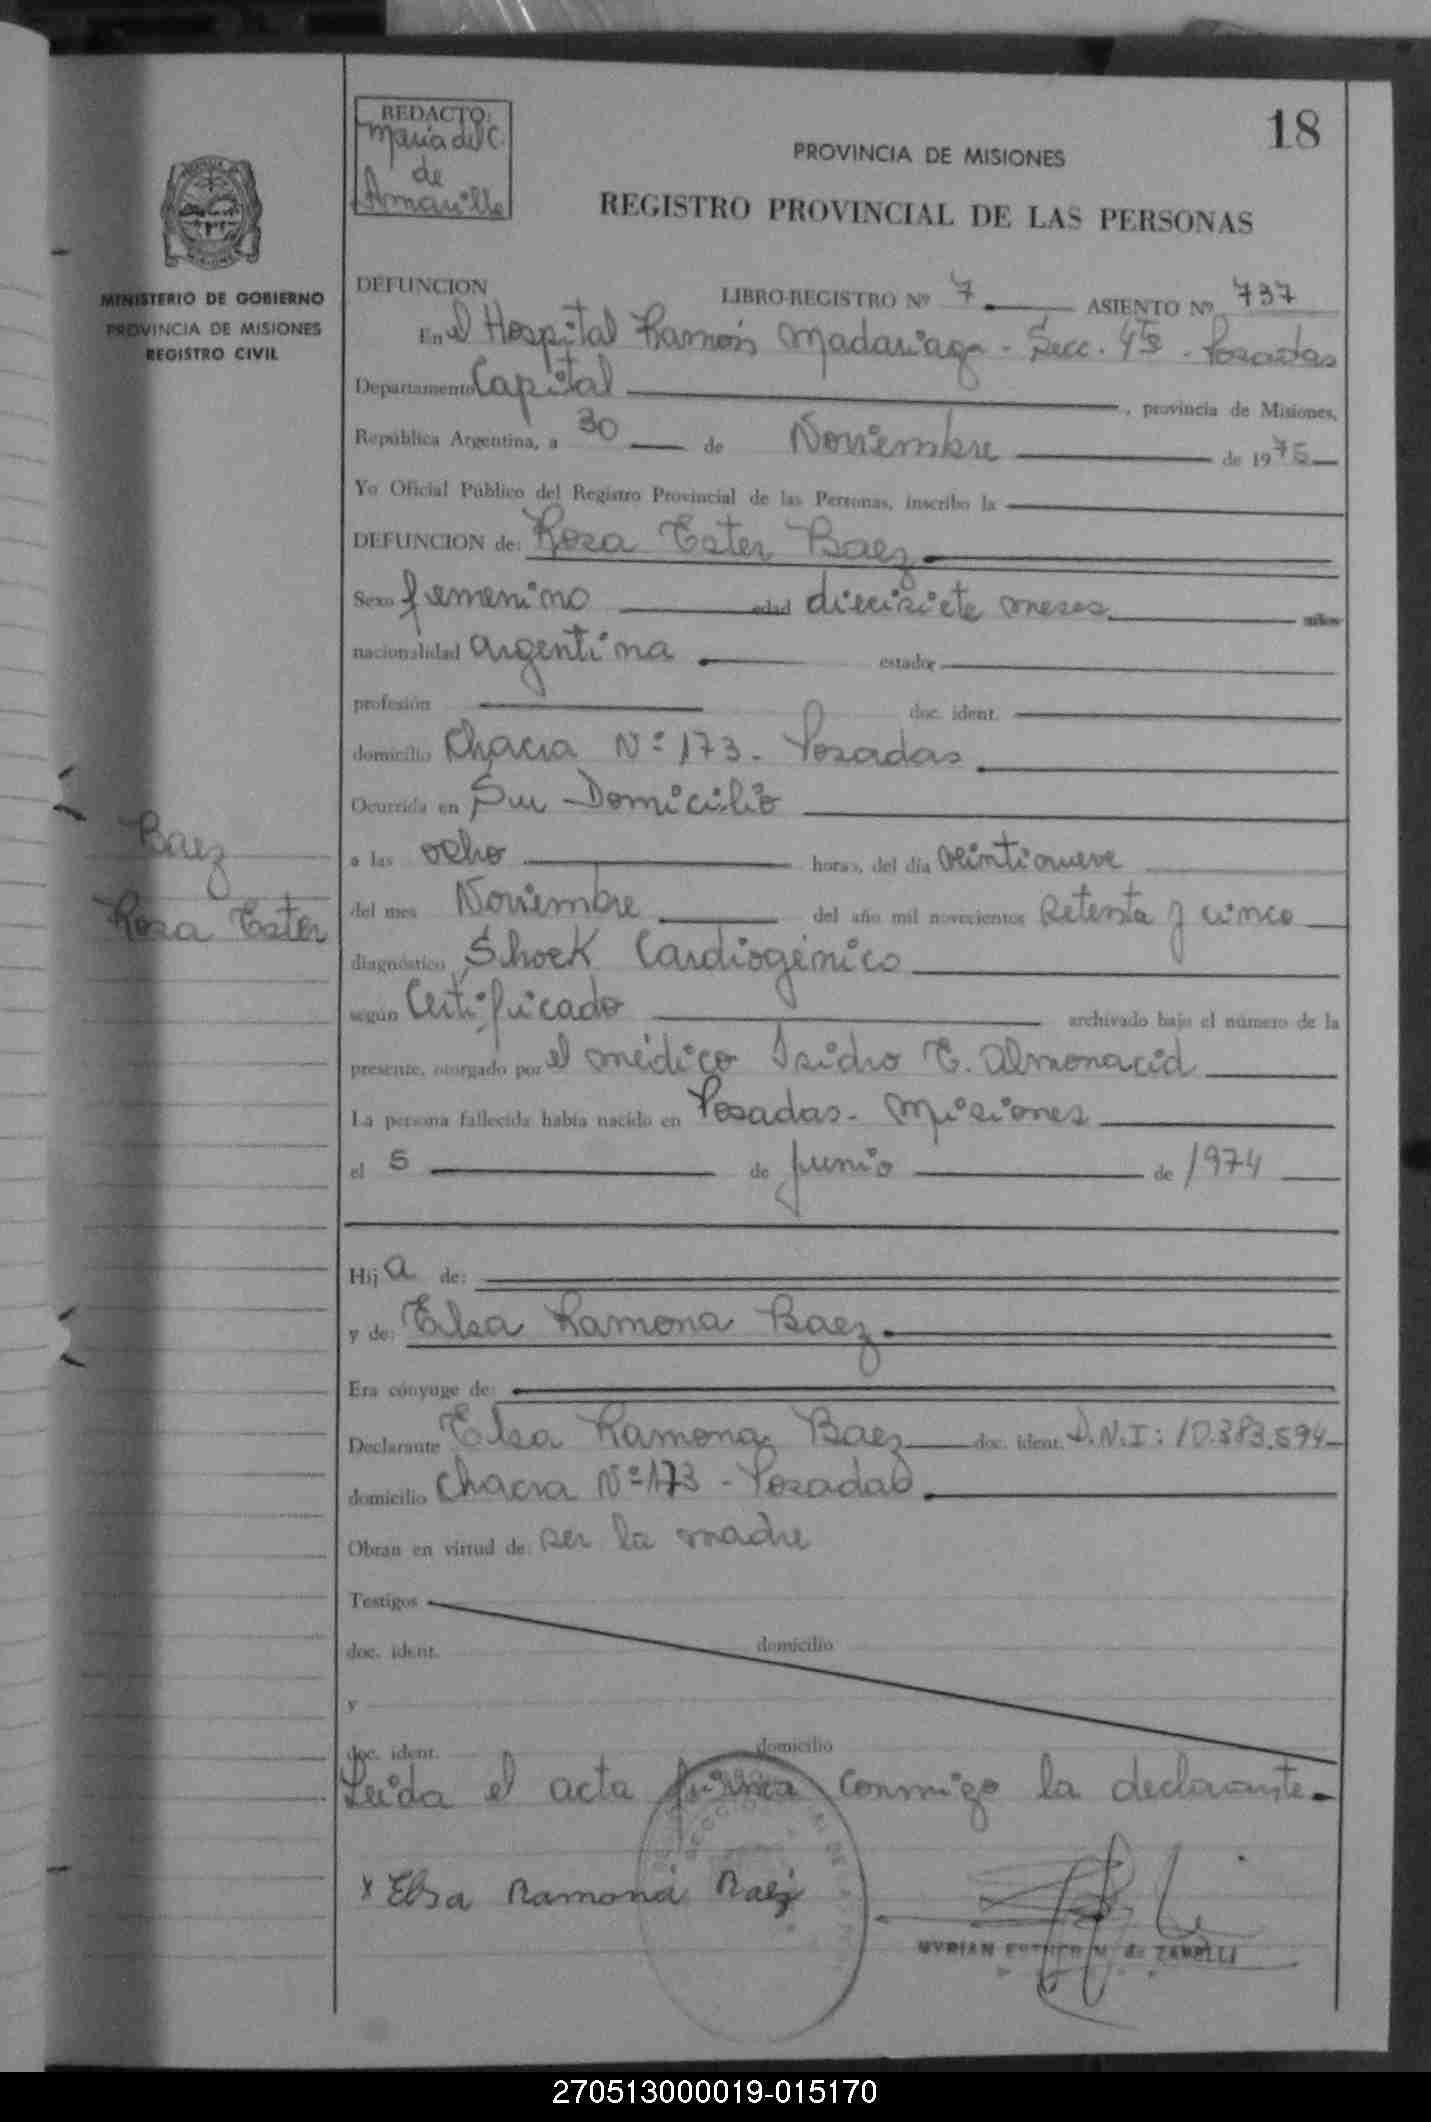 18
REDACTO:
Maria del C.
de
Amarilla
PROVINCIA DE MISIONES
REGISTRO PROVINCIAL DE LAS PERSONAS
MINISTERIO DE GOBIERNO
PROVINCIA DE MISIONES
REGISTRO CIVIL
DEFUNCION LIBRO-REGISTRO Nº 7 ASIENTO Nº 737
En el Hospital Ramón Madariaga - Secc. 4ta - Posadas
Departamento Capital, provincia de Misiones,
República Argentina, a 30 de Noviembre de 1975
Yo Oficial Público del Registro Provincial de las Personas, inscribo la
DEFUNCION de: Rosa Ester Baez
Sexo femenino edad diecisiete meses años
nacionalidad argentina estado
profesión doc. ident.
domicilio Chacra Nº 173 - Posadas
Ocurrida en Su Domicilio
Baez
Rosa Ester
a las ocho horas, del día veintinueve
del mes Noviembre del año mil novecientos setenta y cinco
diagnóstico Shock Cardiogénico
según Certificado archivado bajo el número de la
presente, otorgado por el médico Isidro E. Almonacid
La persona fallecida había nacido en Posadas - Misiones
el 5 de junio de 1974
Hija de:
y de: Elsa Ramona Baez
Era cónyuge de:
Declarante Elsa Ramona Baez doc. ident. D.N.I: 10.383.594
domicilio Chacra Nº 173 - Posadas
Obran en virtud de: ser la madre
Testigos
doc. ident. domicilio
y
doc. ident. domicilio
Leida el acta firma conmigo la declarante.
x Elsa Ramona Baez
MYRIAN ESTHER M. de ZANELLI
270513000019-015170